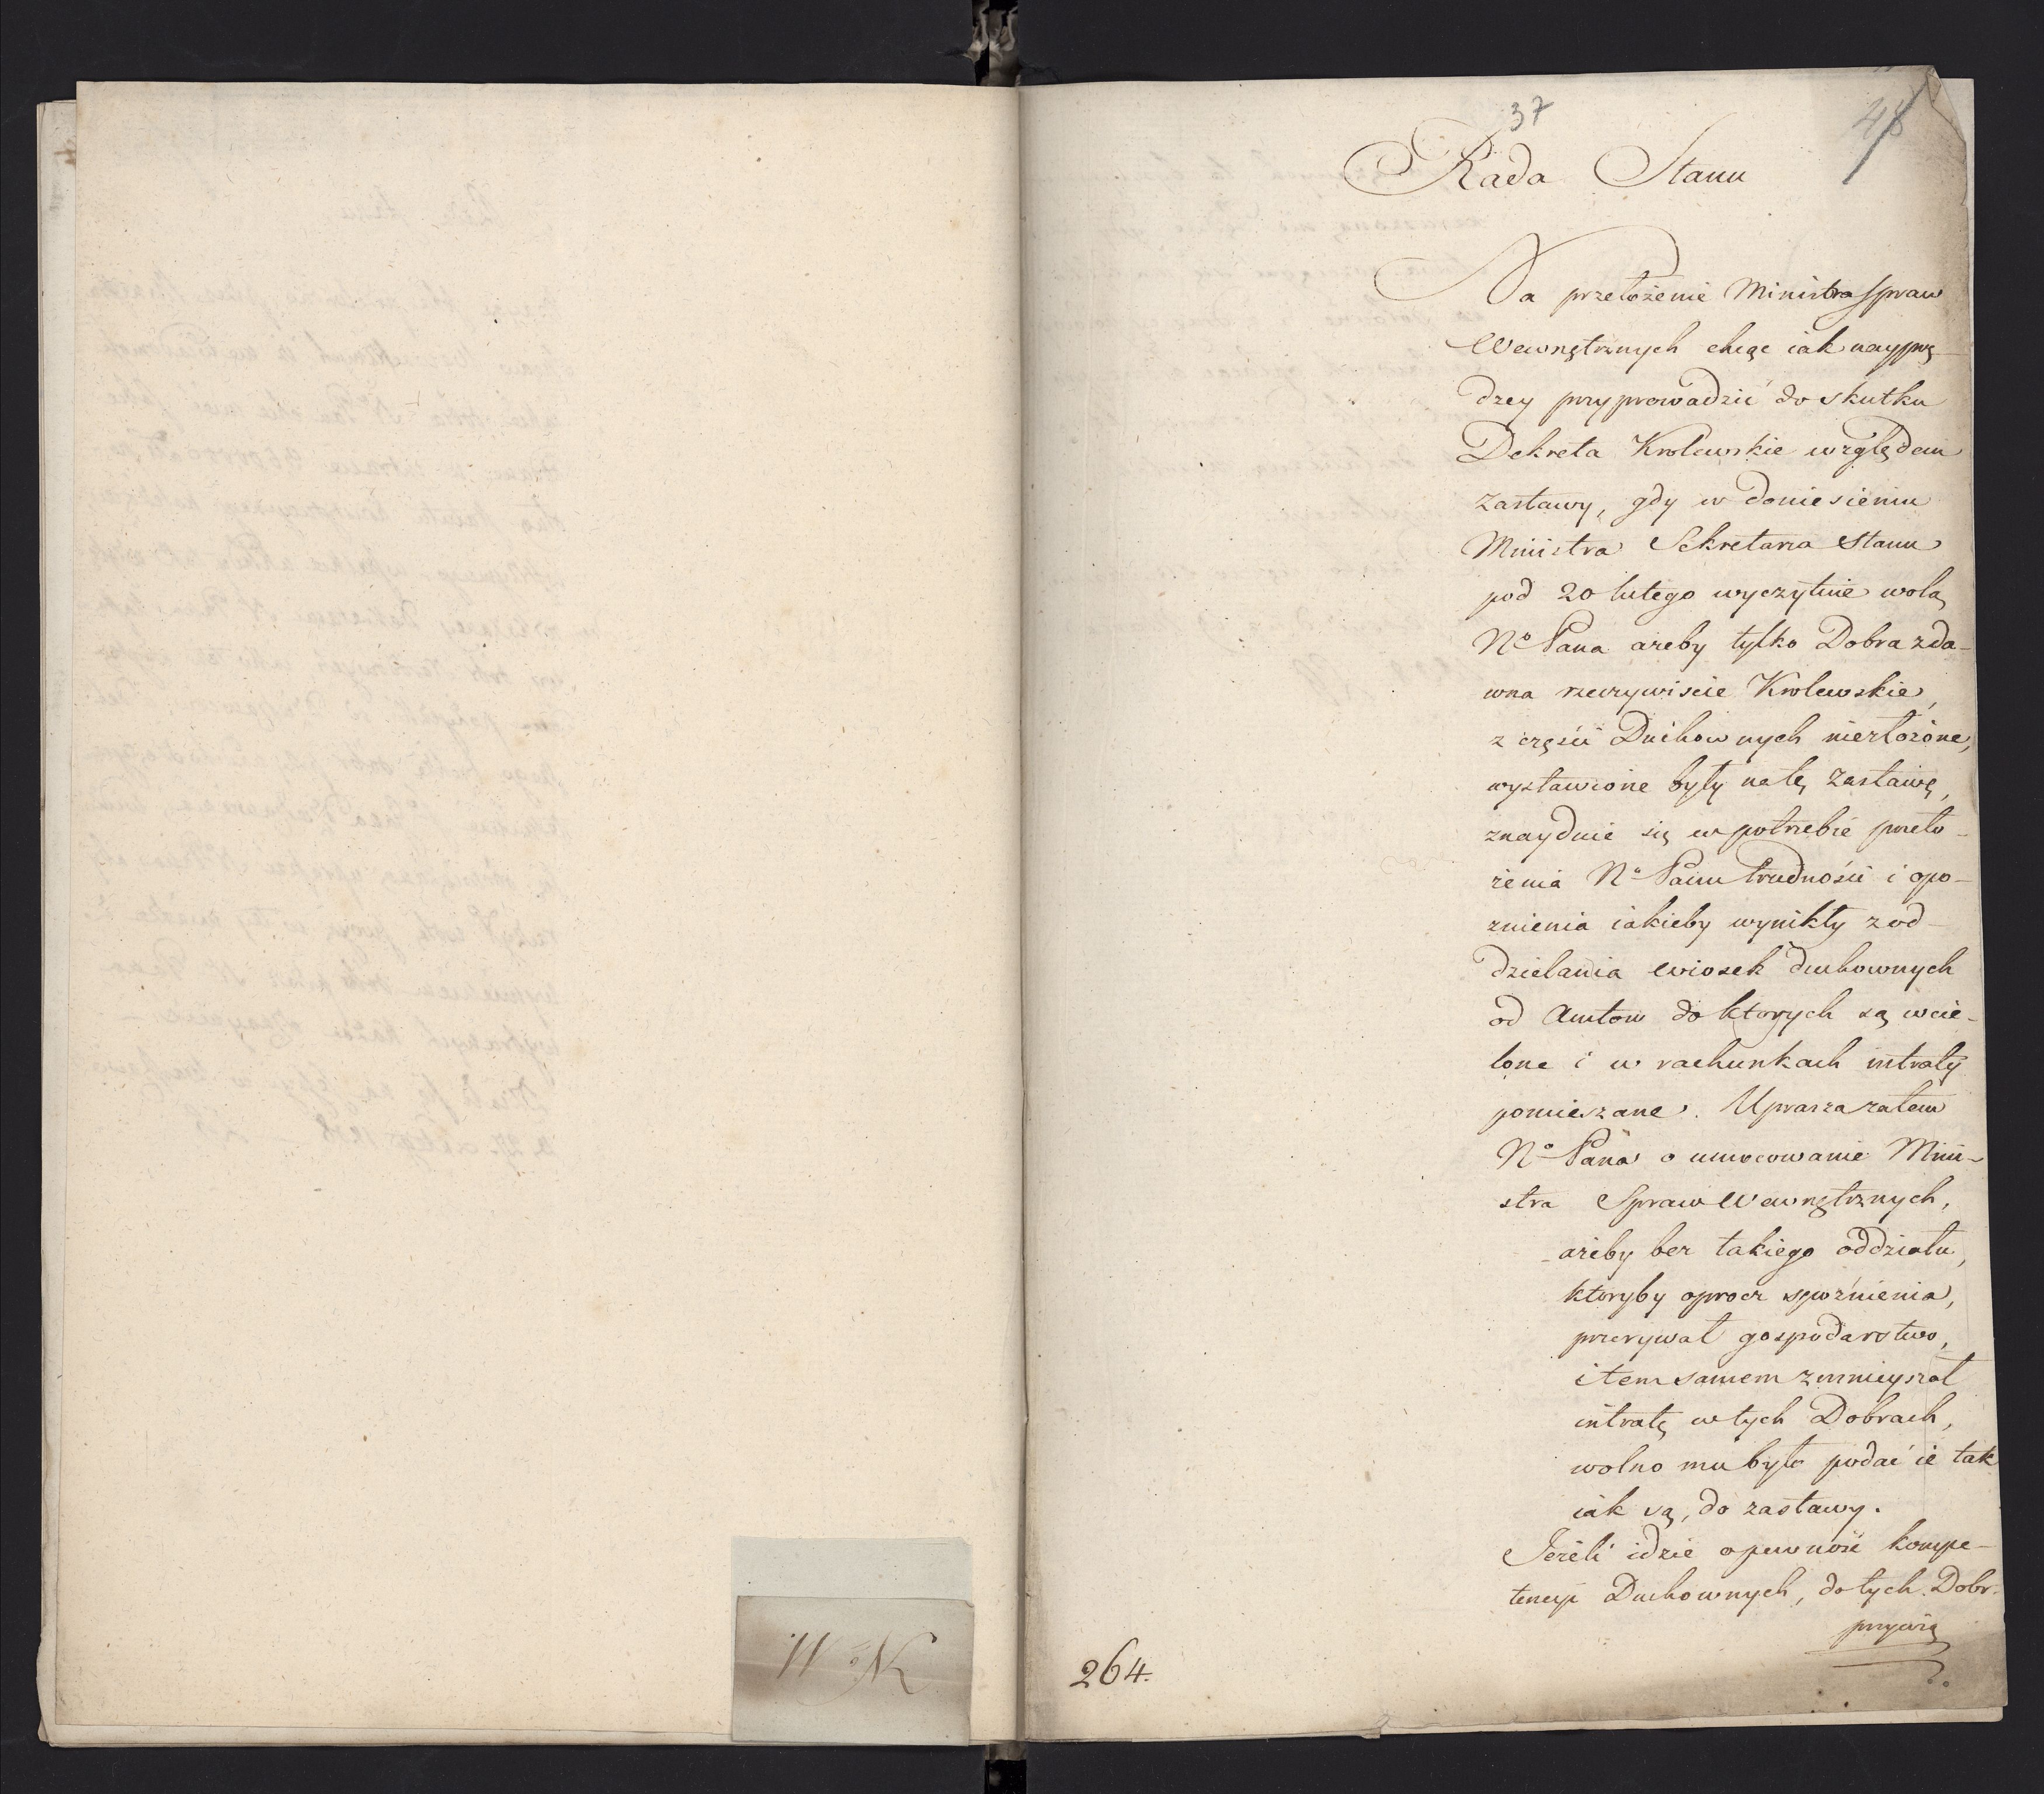 N<sup>o</sup> 11
37
48
Rada Stanu
Na przełożenie Ministra Spraw
Wewnętrznych chcąc iak nayprę-
dzey przyprowadzić do skutku
Dekreta Krolewskie względem
zastawy, gdy w doniesieniu
Ministra Sekretarza Stanu
pod 20 lutego wyczytuie wolą
N<sup>o</sup> Pana ażeby tylko Dobra zda-
wna rzeczywiscie Krolewskie,
z części Duchownych niezłożone,
wystawione były na tę zastawę,
znayduie się w potrzebie przeło-
żenia N<sup>u</sup> Panu trudności i opo-
znienia iakieby wynikły z od-
dzielania wiosek duchownych
od Amtow do ktorych są wcie-
lone i w rachunkach intraty
pomieszane. Uprasza zatem
N<sup>o</sup> Pana o umocowanie Mini-
stra Spraw Wewnętrznych,
ażeby bez takiego oddziału,
ktoryby oprocz spoźnienia,
przerywał gospodarstwo,
i tem samem zmnieyszał
intratę w tych Dobrach,
wolno mu było podać ie tak
iak są, do zastawy.
Jeżeli idzie o pewność kompe-
tencyi Duchownych, do tych Dobr
przywią
264.